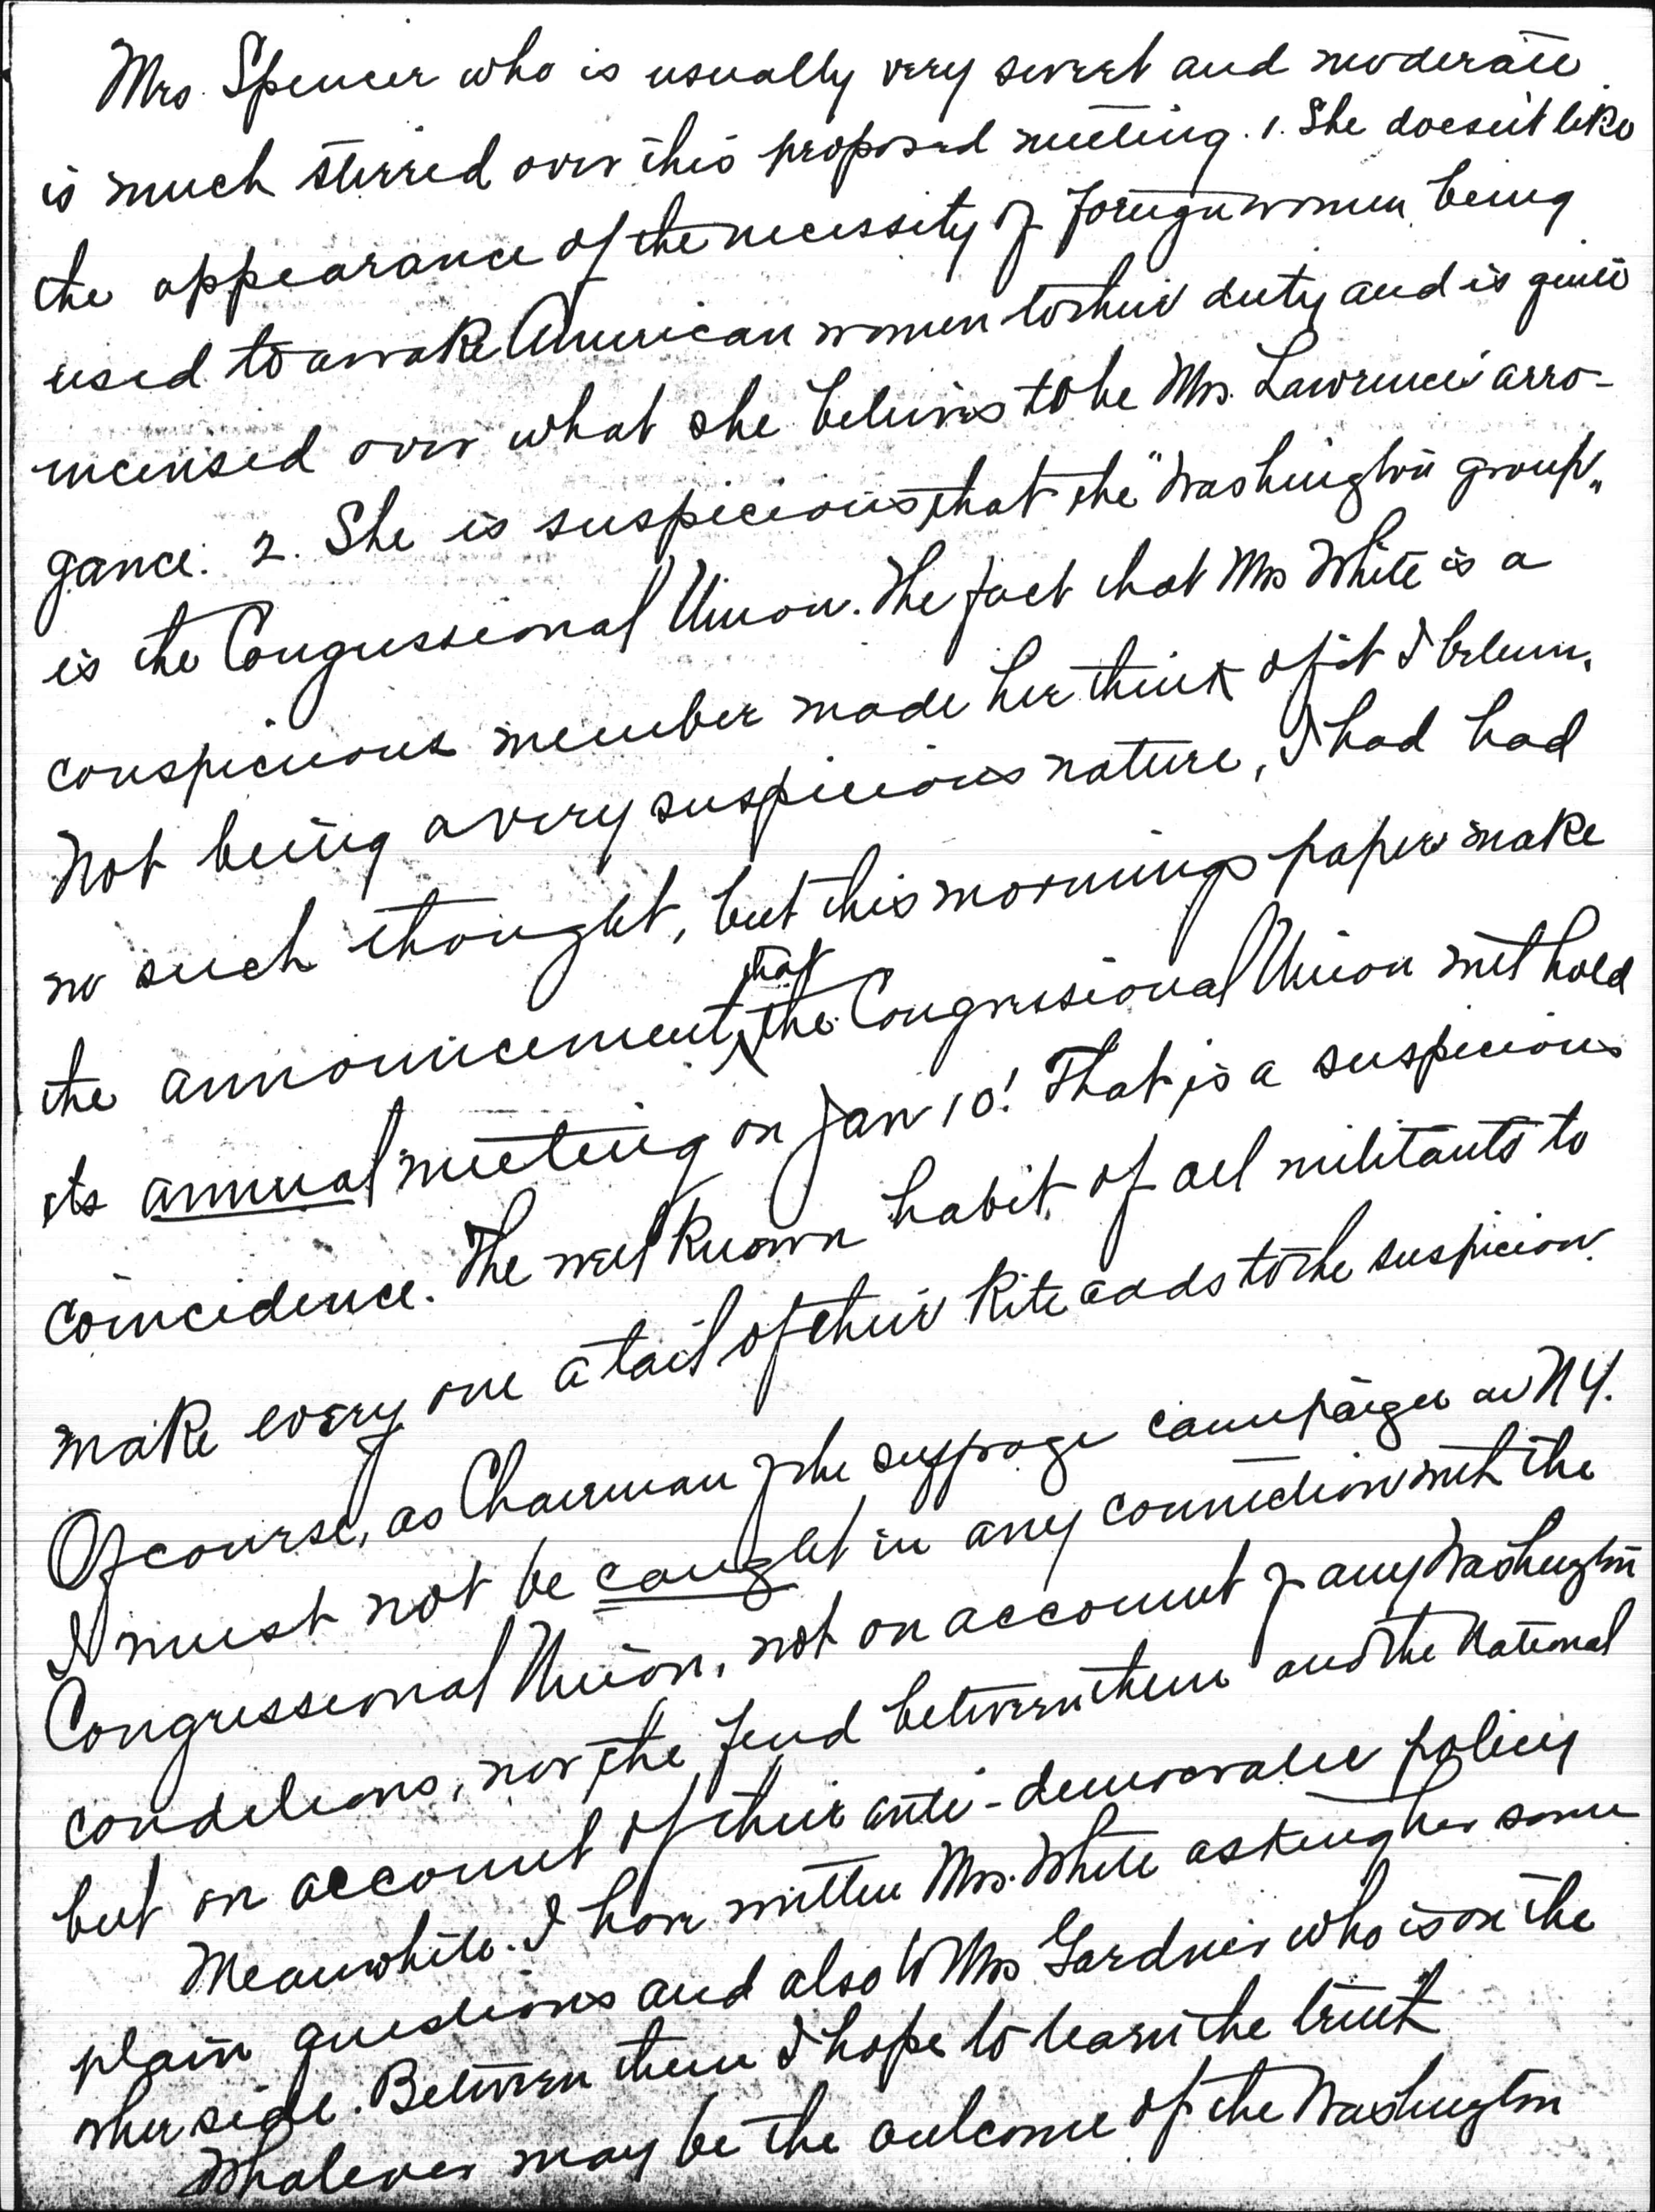 Mrs. Spencer who is usually very sweet and moderate
is much stirred over this proposed meeting. 1. She doesn't like
the appearance of the necessity of foreign women being
used to awake American women to their duty and is quite
incensed over what she believes to be Mrs. Lawrence' arro-
gance. 2. She is suspicious that the "Washington group"
is the Congressional Union. The fact that Mrs White is a
conspicuous member made her think of it I believe.
Not being a very suspicious nature, I had had
no such thought, but this mornings papers make
the announcement that the Congressional Union will hold
its annual meeting on Jan 10! That is a suspicious
coincidence. The well known habit of all militants to
make every one a tail of their kite adds to the suspicion.
Of course, as Chairman of the suffrage campaign in N Y.
I must not be caught in any connection with the
Congressional Union, not on account of any Washington
conditions, nor the feud between them and the National
but on account of their anti-democratic policy
Meanwhile. I have written Mrs. White asking her some
plain questions and also to Mrs Gardner who is on the
other side. Between them I hope to learn the truth
Whatever may be the outcome of the Washington